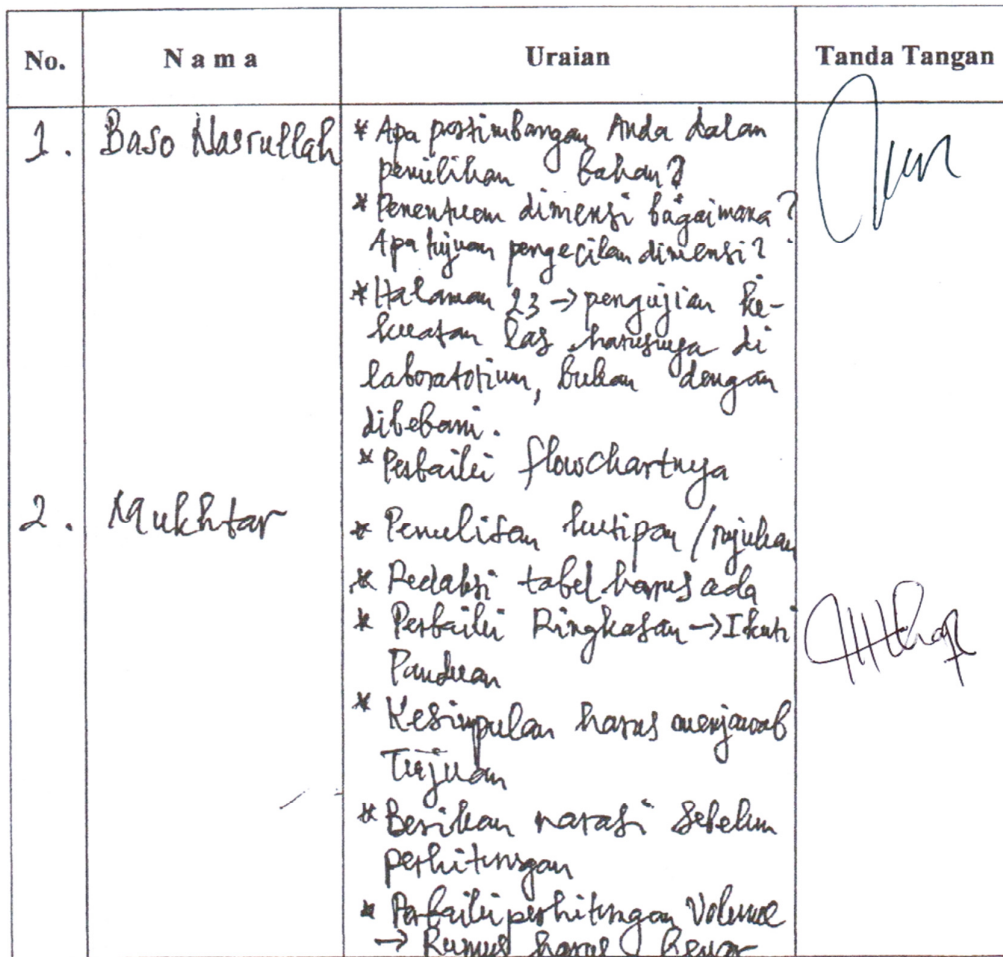 No. N a m a Uraian Tanda Tangan
1. Baso Nasrullah * Apa pertimbangan Anda dalam
pemilihan bahan?
* Penentuan dimensi bagaimana?
Apa tujuan pengecilan dimensi?
* Halaman 23 → pengujian ke-
kuatan las harusnya di
laboratorium, bukan dengan
dibebani.
* Perbaiki flowchartnya
2. Mukhtar * Penulisan kutipan / rujukan
* Redaksi tabel harus ada
* Perbaiki Ringkasan → Ikuti
Panduan
* Kesimpulan harus menjawab
Tujuan
* Berikan narasi sebelum
perhitungan
* Perbaiki perhitungan Volume
→ Rumus harus benar